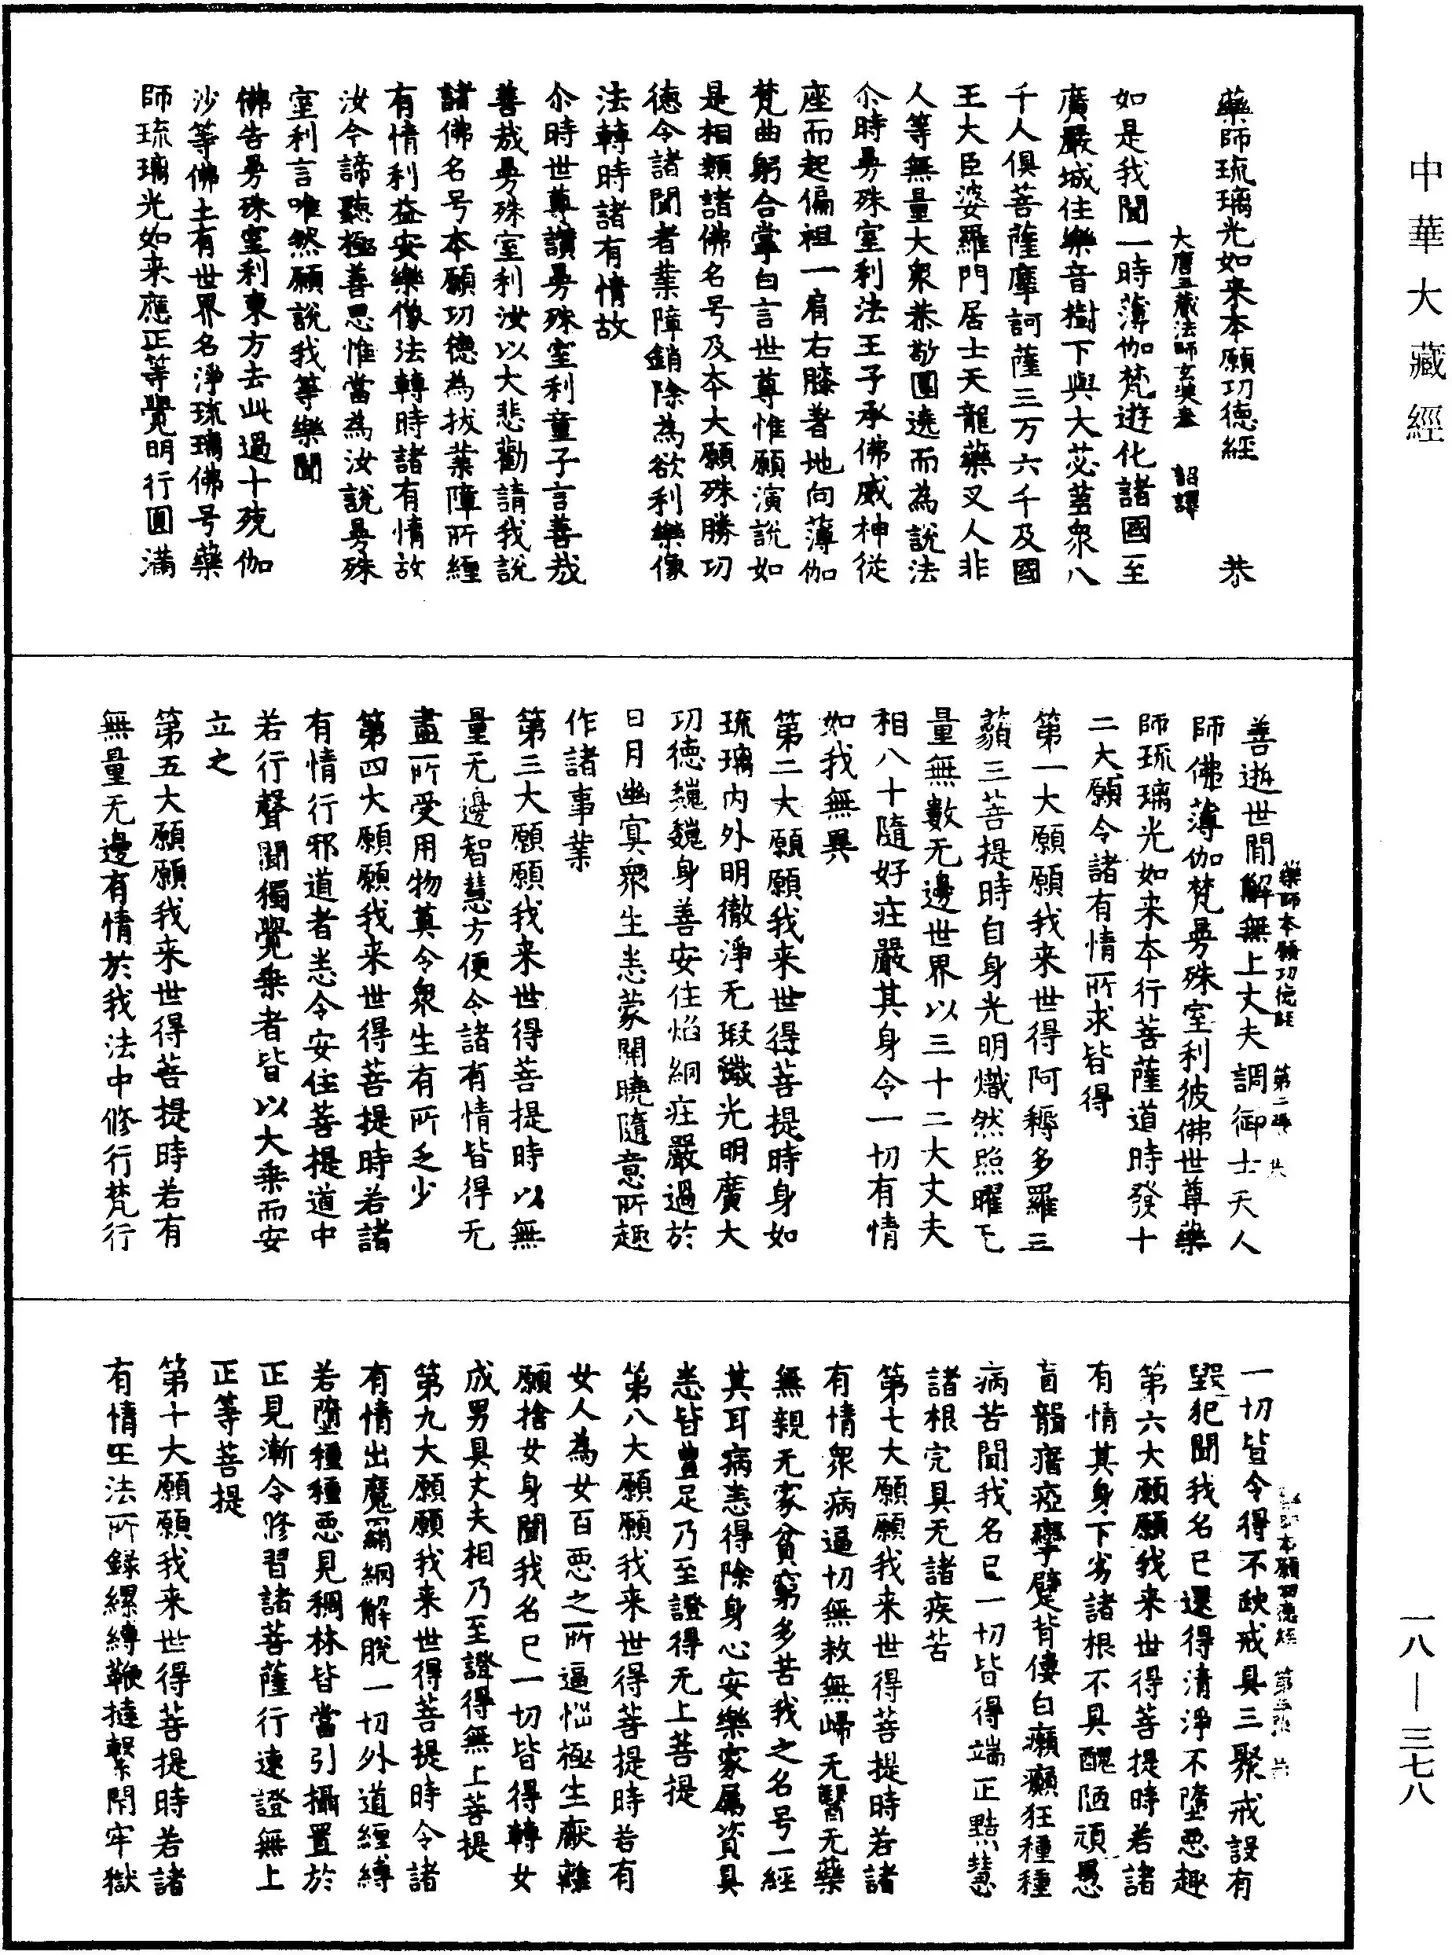 中華大藏經
藥師琉璃光如来本願功德經　恭
大唐三藏法師玄奘奉　詔譯
如是我聞一時薄伽梵遊化諸國至
廣嚴城住樂音樹下與大苾蒭衆八
千人俱菩薩摩訶薩三万六千及國
王大臣婆羅門居士天龍藥叉人非
人等無量大衆恭敬圍遶而為說法
尒時曼殊室利法王子承佛威神從
座而起偏袒一肩右膝著地向薄伽
梵曲躬合掌白言世尊惟願演說如
是相類諸佛名号及本大願殊勝功
德令諸聞者業障銷除為欲利樂像
法轉時諸有情故
尒時世尊讚曼殊室利童子言善哉
善哉曼殊室利汝以大悲勸請我說
諸佛名号本願功德為拔業障所纏
有情利益安樂像法轉時諸有情故
汝今諦聽極善思惟當為汝說曼殊
室利言唯然願說我等樂聞
佛告曼殊室利東方去此過十殑伽
沙等佛土有世界名淨琉璃佛号藥
師琉璃光如来應正等覺明行圓滿
藥師本願功德經　第二張　恭
善逝世間解無上丈夫調御士天人
師佛薄伽梵曼殊室利彼佛世尊藥
師琉璃光如来本行菩薩道時發十
二大願令諸有情所求皆得
第一大願願我来世得阿耨多羅三
藐三菩提時自身光明熾然照曜无
量無數无邊世界以三十二大丈夫
相八十隨好莊嚴其身令一切有情
如我無異
第二大願願我来世得菩提時身如
琉璃内外明徹淨无瑕穢光明廣大
功德巍巍身善安住焰網莊嚴過於
日月幽冥衆生悉蒙開曉隨意所趣
作諸事業
第三大願願我来世得菩提時以無
量无邊智慧方便令諸有情皆得无
盡所受用物莫令衆生有所乏少
第四大願願我来世得菩提時若諸
有情行邪道者悉令安住菩提道中
若行聲聞獨覺乘者皆以大乘而安
立之
第五大願願我来世得菩提時若有
無量无邊有情於我法中修行梵行
本願功德經　第三張　恭
一切皆令得不缺戒具三聚戒設有
毀犯聞我名已還得清淨不墮惡趣
第六大願願我来世得菩提時若諸
有情其身下劣諸根不具醜陋頑愚
盲聾瘖瘂攣躄背僂白癩癲狂種種
病苦聞我名已一切皆得端正黠慧
諸根完具无諸疾苦
第七大願願我来世得菩提時若諸
有情衆病逼切無救無歸无醫无藥
無親无家貧窮多苦我之名号一經
其耳病悉得除身心安樂家屬資具
悉皆豊足乃至證得无上菩提
第八大願願我来世得菩提時若有
女人為女百惡之所逼惱極生厭離
願捨女身聞我名已一切皆得轉女
成男具丈夫相乃至證得無上菩提
第九大願願我来世得菩提時令諸
有情出魔羂網解脫一切外道纏縛
若墮種種惡見稠林皆當引攝置於
正見漸令修習諸菩薩行速證無上
正等菩提
第十大願願我来世得菩提時若諸
有情王法所錄縲縛鞭撻繫閉牢獄
一八—三七八